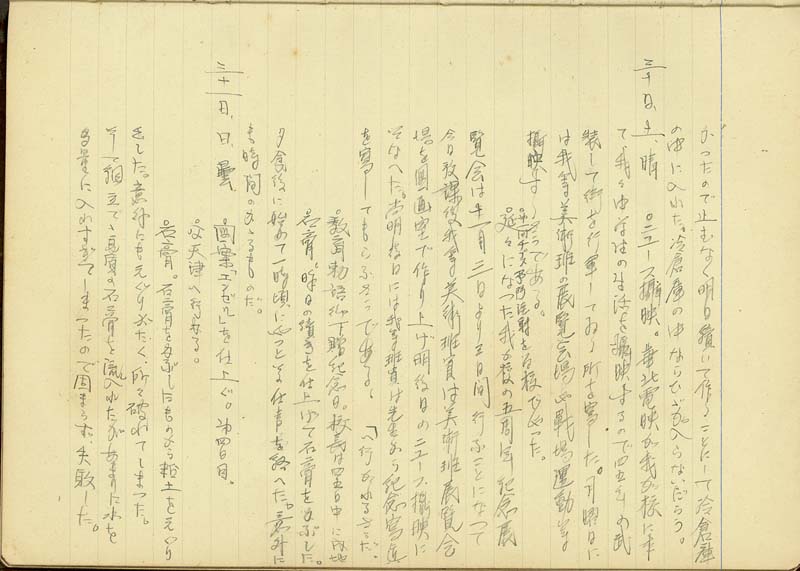 かつたので止むなく明日續いて作ることにして冷倉庫
の中に入れた。冷倉庫の中ならひゞが入らないだらう。
三十日、土、晴 。ニュース撮映。華北電映が我が校に来
て、我々中学生の生活を撮映するので四五年の武
装して街を行軍しておる所を写した。月曜日に
は我等美術班の展覧会場や戦場運動等を
撮映するさうである。
。第一回チブス予防注射を学校でやつた。
。延々になつた我が校の五周年記念展
覧会は十一月三日より三日間行ふことになつて
今日放課後我等美術班員は美術班展覧会
場を圖画室で作り上げ明後日のニュース撮映に
そなへた。尚明後日には我等班員は先生から紀念写真
を写してもらふさうである。
。教育勅語御下贈紀念日。校長は四五日中に内地
へ行かれるさうだ。
。石膏。昨日の續きを仕上げて石膏をかぶした。
夕食後に始めて一時頃にやつと仕事を終へた。意外に
も時間のかゝるものだ。
三十一日、日、曇 。圖案「エンゼル」を仕上ぐ。第四日目。
。父天津へ行かる。
。石膏。石膏をかぶしたものから粘土をえぐり
出した。意外にもえぐりがたく、所々破れてしまつた。
そして組立てゝ高質の石膏を流入れたがあまりに水を
多量に入れすぎてしまつたので固まらず、失敗した。